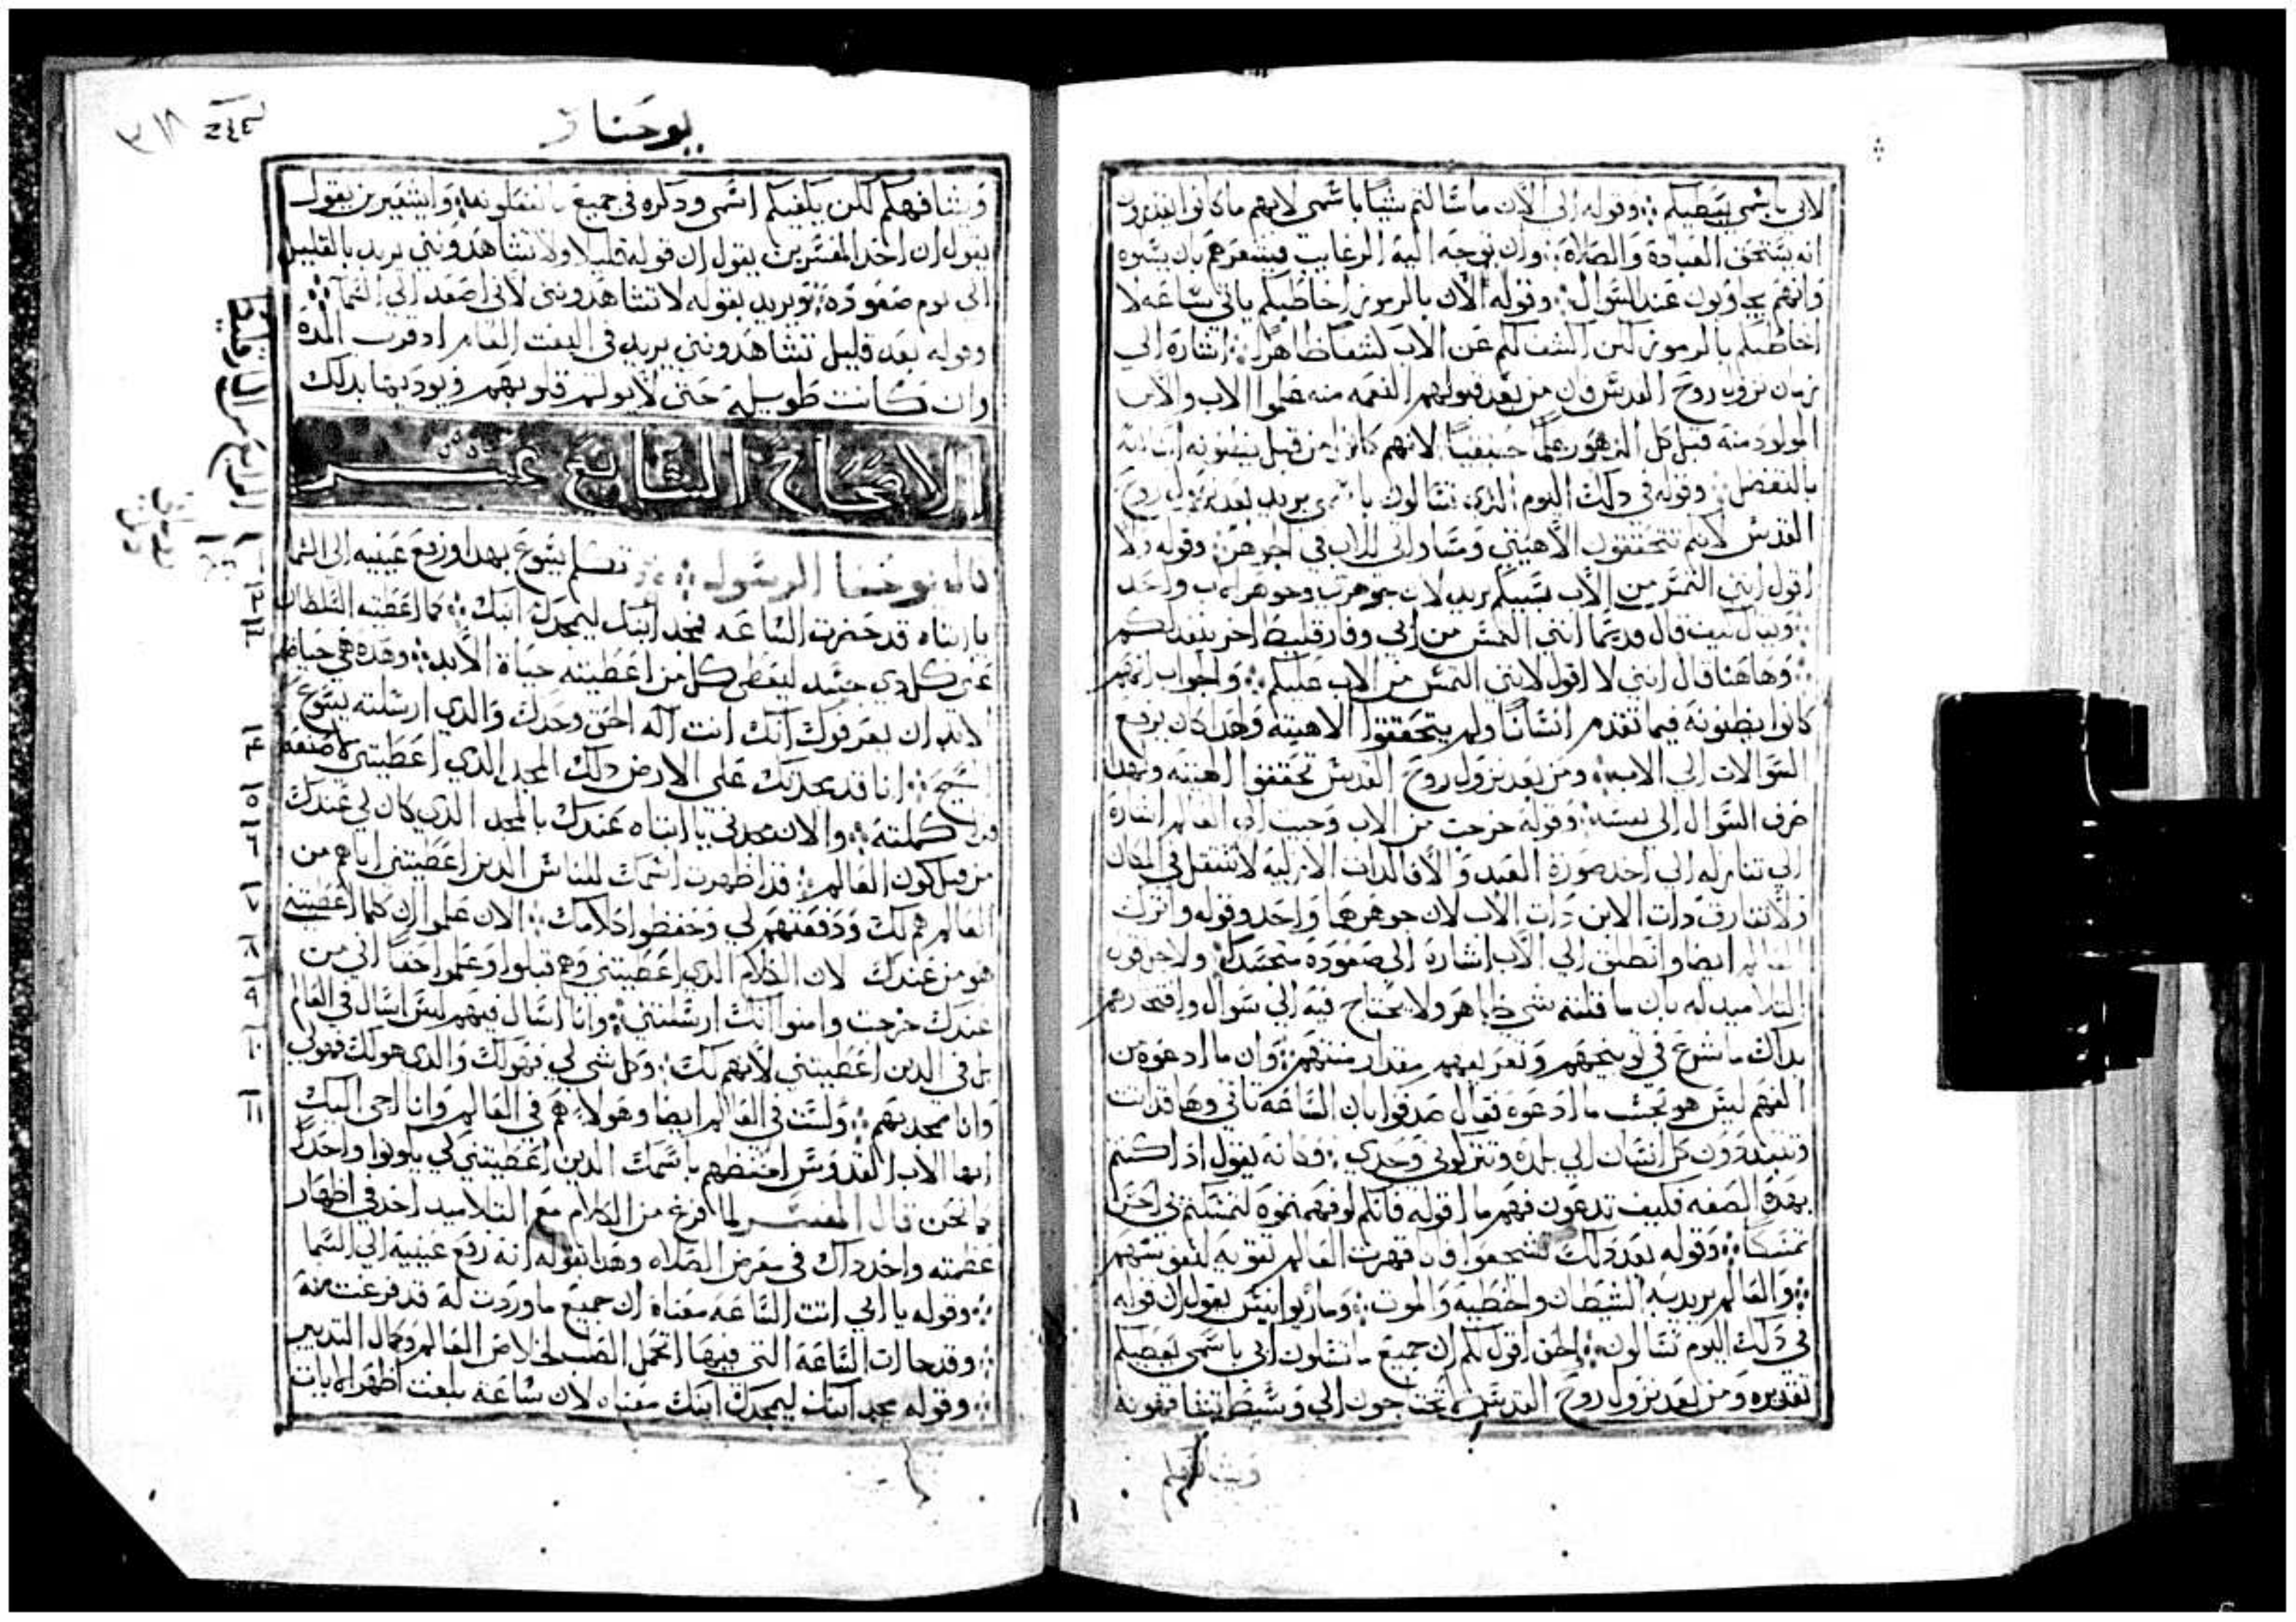 لان باسمي يعطيكم وقوله الي الان ما سالتم شيا باسمي لانهم ما كانوا يقدرون
انه يستحق العبادة والصلاة وان توجه اليه الرغايب فيشعرهم بان يسره
وانهم يجاوبون عند السوال وقوله الان بالرموز اخاطبكم ياتي ساعه لا
اخاطبكم بالرموز لكن اكشف لكم عن الاب كشفا ظاهرا اشارة الي
زمان نزول روح القدس وان من بعد قبولهم النعمه منه علموا الاب والاب
المولود منه قبل كل الدهور علما حقيقيا لانهم كانوا من قبل يظنونه
بالتفضل وقوله في دلك اليوم الذي تسالون باسمي يريد بعد نزول روح
القدس لانكم تتحققون الاهيتي ومساواتي للاب في الجوهر وقوله ولا
اقول انني التمس من الاب بسببكم يريد لان جوهري وجوهر الاب واحد
كيف قال قديما انني التمس من ابي وفارقليط اخر ينفد لكم
وهاهنا قال انني لا اقول لانني التمس من الاب عليكم والجواب انهم
كانوا يظنونه فيما تقدم انسانا ولم يتحققوا الاهيته ولهدا كان يرفع
السوالات الي الاب ومن بعد نزول روح القدس تحققوا الهيته ولهدا
صرف السوال الي نفسه وقوله خرجت من الاب وجيت الي العالم اشارة
الي تنازله الي اخد صورة العبد والا فالدات الازليه لا تنتقل في المكان
ولا تفارق دات الابن دات الاب لان جوهرهما واحد وقوله واترك
العالم ايضا وانطلق الي الاب اشارة الي صعوده متجسدا ولاجل قول
التلاميد له بان ما قلته شي ظاهر ولا يحتاج فيه الي سوال وافتخارهم
بداك ما شرع في توبيخهم وتعريفهم مقدار منتهم وان ما ادعوه من
الفهم ليس هو بحسب ما ادعوه فقال صدقوا بان الساعه تاتي وها قد اتت
وتتبددون كل انسان الي بلده وتتركوني وحدي وكانه يقول اذا كنتم
بهده الصفه فكيف تدعون فهم ما اقوله فانكم لو فهمتموه لتمسكتم بي احسن
تمسكا وقوله بعد دلك تشجعوا فان قهرت العالم تقويه لنفوسهم
والعالم يريد به الشيطان والخطيه والموت ومار يوانيس يقول ان قوله
في دلك اليوم تسالون الحق اقول لكم ان جميع ما تسلون ابي باسمي يعطيكم
تقديره ومن بعد نزول روح القدس لا تحتاجون الي وسيط يتشافهونه
ويتشافهكم
يوحنا
ويشافهكم لكن يكفيكم اسمي ودكره في جميع ما تفعلونه وايشعيرين يقول
يقول ان احد المفسرين يقول ان قوله قليلا ولا تشاهدونني يريد بالقليل
الي يوم صعوده ويريد بقوله لا تشاهدونني لاني اصعد الي السما
وقوله بعد قليل تشاهدونني يريد في البعث العام اد قرب المدة
وان كانت طويله حتى لا يولم قلوبهم ويوديها بدلك
الاصحاح السابع عشر
قال يوحنا الرسول تكلم يسوع بهدا ورفع عينيه الي السما
يا ابتاه قد حضرت الساعه فمجد ابنك ليمجدك ابنك كما اعطيته السلطان
على كل دي جسد ليعطي كل من اعطيته حياة الابد وهده هي حياة
الابد ان يعرفوك انك انت اله الحق وحدك والدي ارسلته يسوع
المسيح انا قد مجدتك على الارض دلك المجد الدي اعطيتني لاصنعه
قد كملته والان مجدني يا ابتاه عندك بالمجد الدي كان لي عندك
من قبل كون العالم قد اظهرت اسمك للناس الدين اعطيتني اياهم من
العالم هم لك ودفعتهم لي وحفظوا كلامك الان علموا ان كلما اعطيتني
هو من عندك لان الكلام الدي اعطيتني وهم قبلوا وعلموا حقا اني من
عندك خرجت وامنوا انك ارسلتني وانا اسال فيهم ليس اسال في العالم
بل في الدين اعطيتني لانهم لك وكل شي لي فهو لك والدي هو لك فهو لي
وانا ممجد بهم ولست في العالم ايضا وهولا هم في العالم وانا اجي اليك
ايها الاب القدوس احفظهم باسمك الدين اعطيتني لكي يكونوا واحدا
كما نحن قال المفسر لما فرغ من الكلام مع التلاميد اخد في اظهار
عظمته واخد داك في معرض الصلاه وهدا بقوله انه رفع عينيه الي السما
وقوله يا ابي اتت الساعه معناه ان جميع ما وردت له قد فرغت منه
وقد حانت الساعة التي فيها اتحمل الصلب لخلاص العالم وكمال التدبير
وقوله مجد ابنك ليمجدك ابنك معناه لان ساعة بلغت اظهر الايات
الرابع من الفارقليط